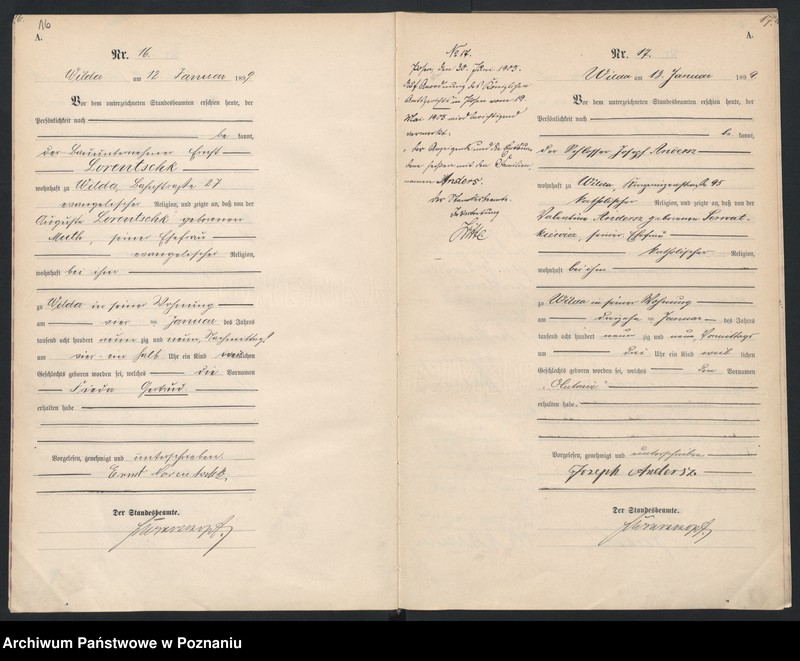 16.
16
A.
Nr. 16.
Wilda am 12 Januar 1899
Vor dem unterzeichneten Standesbeamten erschien heute, der
Persönlichkeit nach
be kannt,
der Bauunternehmer Ernst
Lorentschk
wohnhaft zu Wilda, 27
evangelischer Religion, und zeigte an, daß von der
Auguste Lorentschk geborenen
Muth, seiner Ehefrau
evangelischer Religion,
wohnhaft bei ihm
zu Wilda in seiner Wohnung
am vier ten Januar des Jahres
tausend acht hundert neun zig und neun, Nachmittags
um vier ein halb Uhr ein Kind weiblichen
Geschlechts geboren worden sei, welches die Vornamen
Frieda Gertrud
erhalten habe
Vorgelesen, genehmigt und unterschrieben
Ernst Lorentschk.
Der Standesbeamte.
No 17.
Posen, den 30. 1903.
Auf Anordnung des Königlichen
Amtsgerichts in Posen vom 19.
Mai 1903 wird berichtigend
vermerkt:
der Anzeigende und die
den Familien
namen Anders.
Der Standesbeamte.
In Vertretung
17.
A.
Nr. 17.
Wilda am 13. Januar 1899
Vor dem unterzeichneten Standesbeamten erschien heute, der
Persönlichkeit nach
be kannt,
der Schlosser Joseph Andersz
wohnhaft zu Wilda, 45
katholischer Religion, und zeigte an, daß von der
Valentine Andersz geborenen
seiner Ehefrau
katholischer Religion,
wohnhaft bei ihm
zu Wilda in seiner Wohnung
am Januar des Jahres
tausend acht hundert neun zig und neun, Vormittags
um drei Uhr ein Kind weib lichen
Geschlechts geboren worden sei, welches den Vornamen
erhalten habe.
Vorgelesen, genehmigt und unterschrieben
Joseph Andersz
Der Standesbeamte.
Archiwum Państwowe w Poznaniu